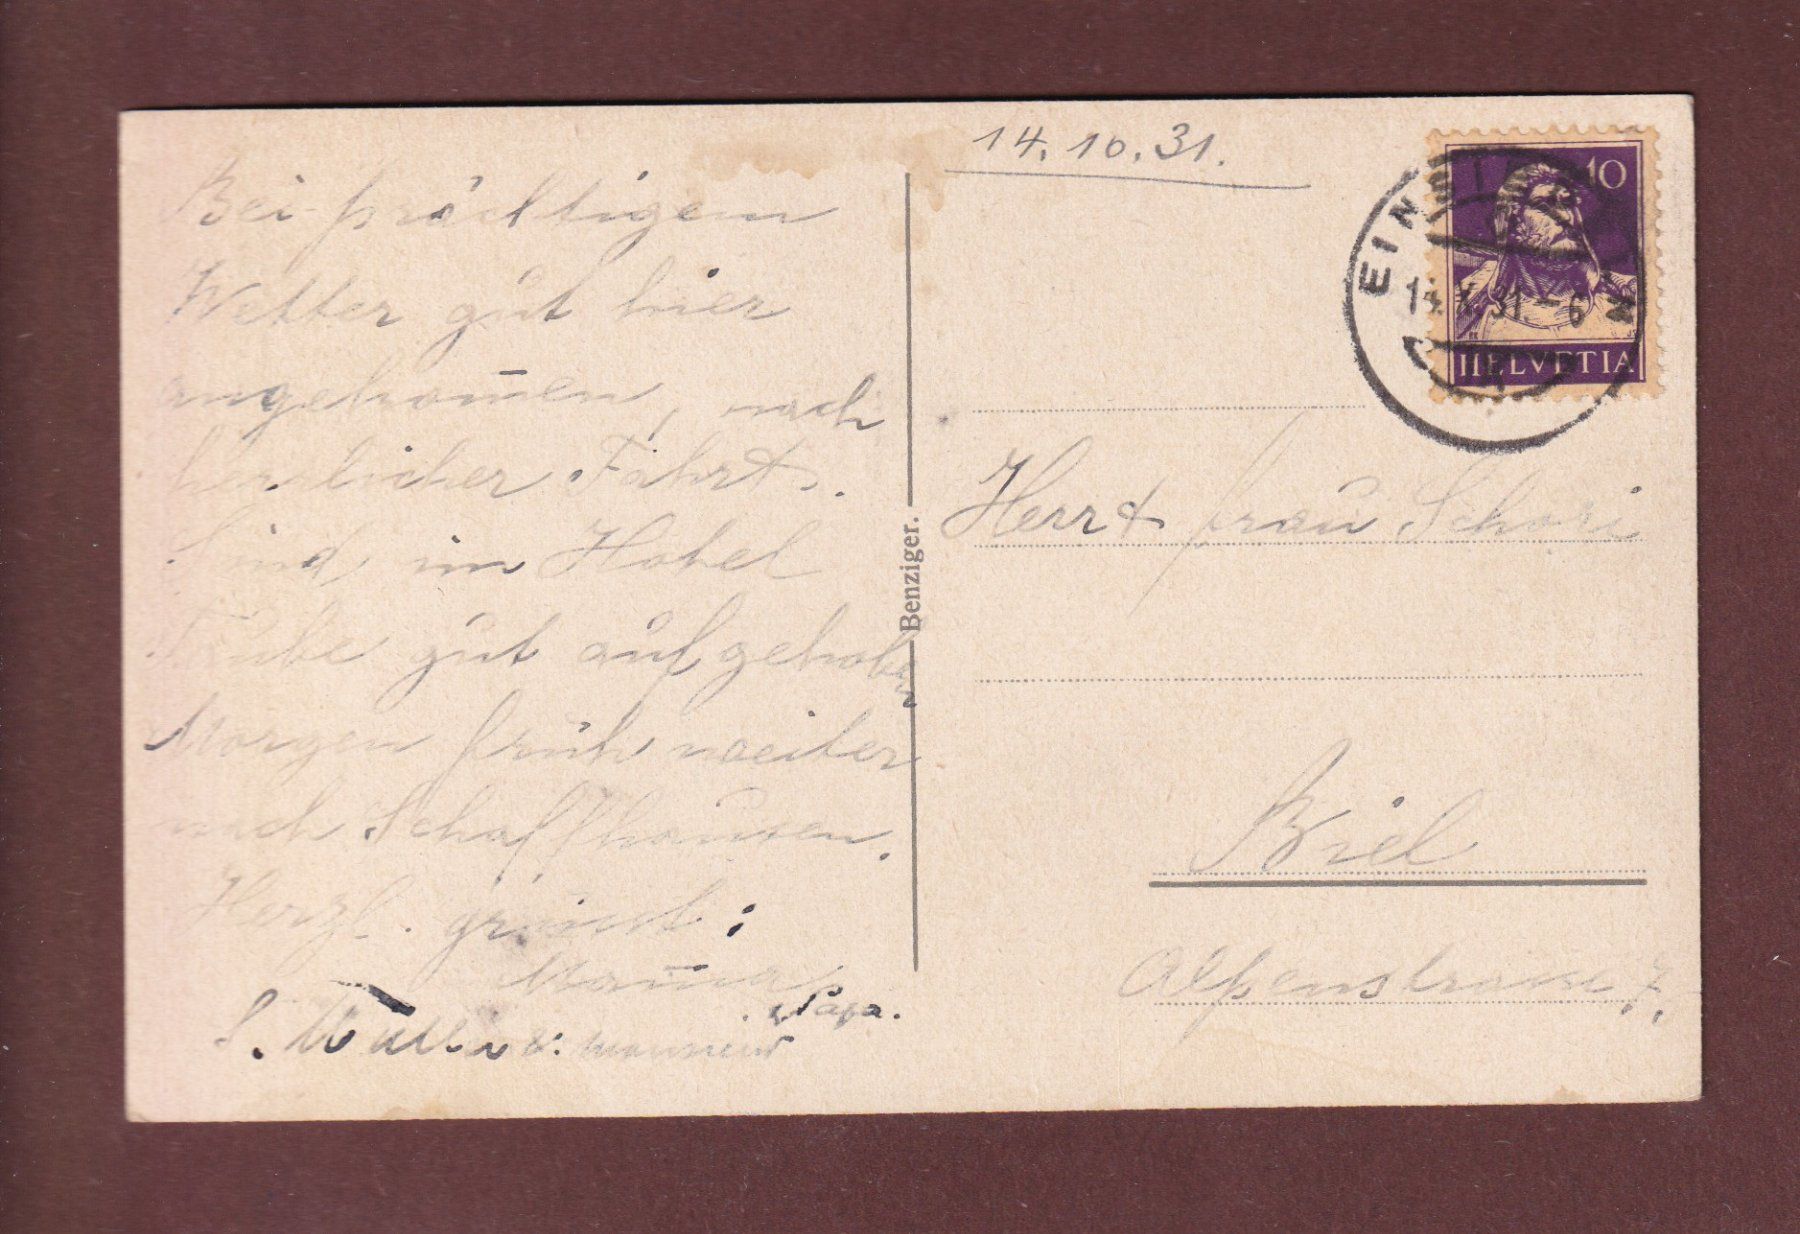 Bei prächtigem
Wetter gut hier
angekom̄en, nach
herrlicher Fahrt.
Sind im Hotel
Taube gut aufgehoben
Morgen früh weiter
nach Schaffhausen.
Herzl. grüsst:
Mam̄a
Papa.
S. & monsieur
Benziger.
14.10.31.
10
HELVETIA
EINSIEDELN
14.X.31.–6
Herr & Frau Schori
Biel
Alpenstrasse 7.